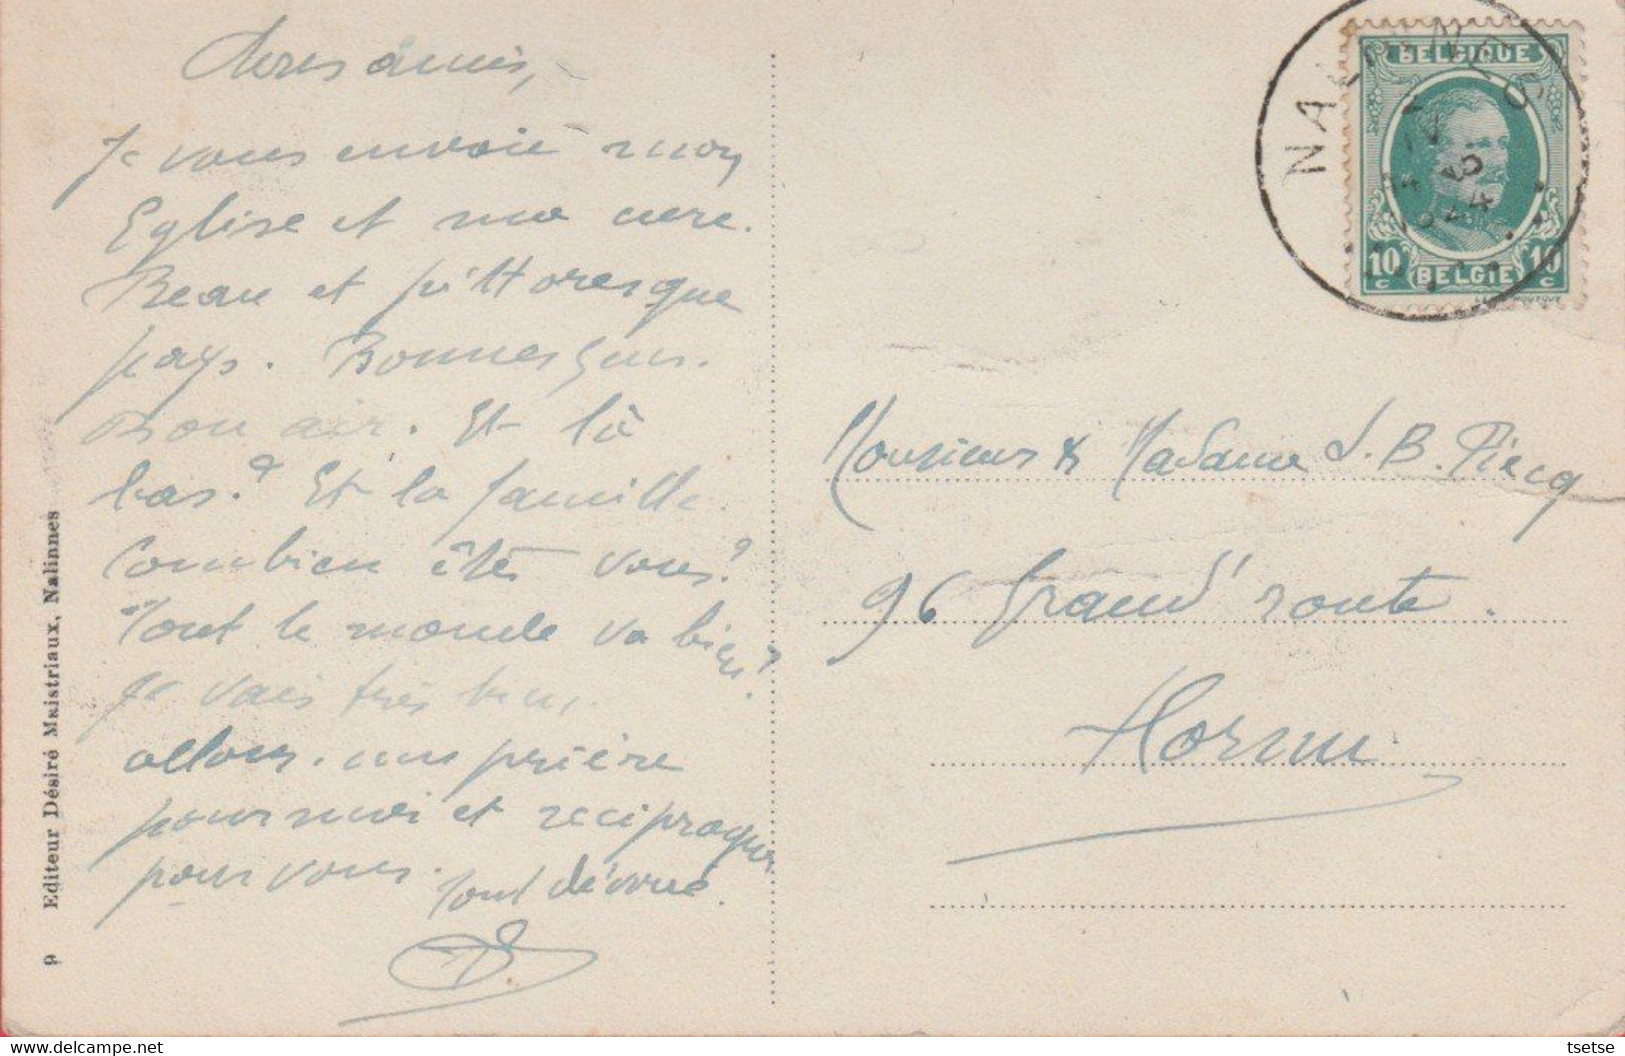 Chers amis,
Je vous envoie mon
Eglise et ma cure.
Beau et pittoresque
pays. Bonnes gens.
Bon air. Et là
bas? Et la famille
Combien êtes vous?
Tout le monde va bien?
Je vais très bien.
allons. une prière
pour moi et réciproque
pour vous. Tout dévoué.
9 Editeur Désiré Maistriaux, Nalinnes
NALINNES
BELGIQUE
10 c BELGIE 10 c
Monsieur & Madame J. B. Piecq
96 Grand' route.
Hornu.
tsetse
delcampe.net